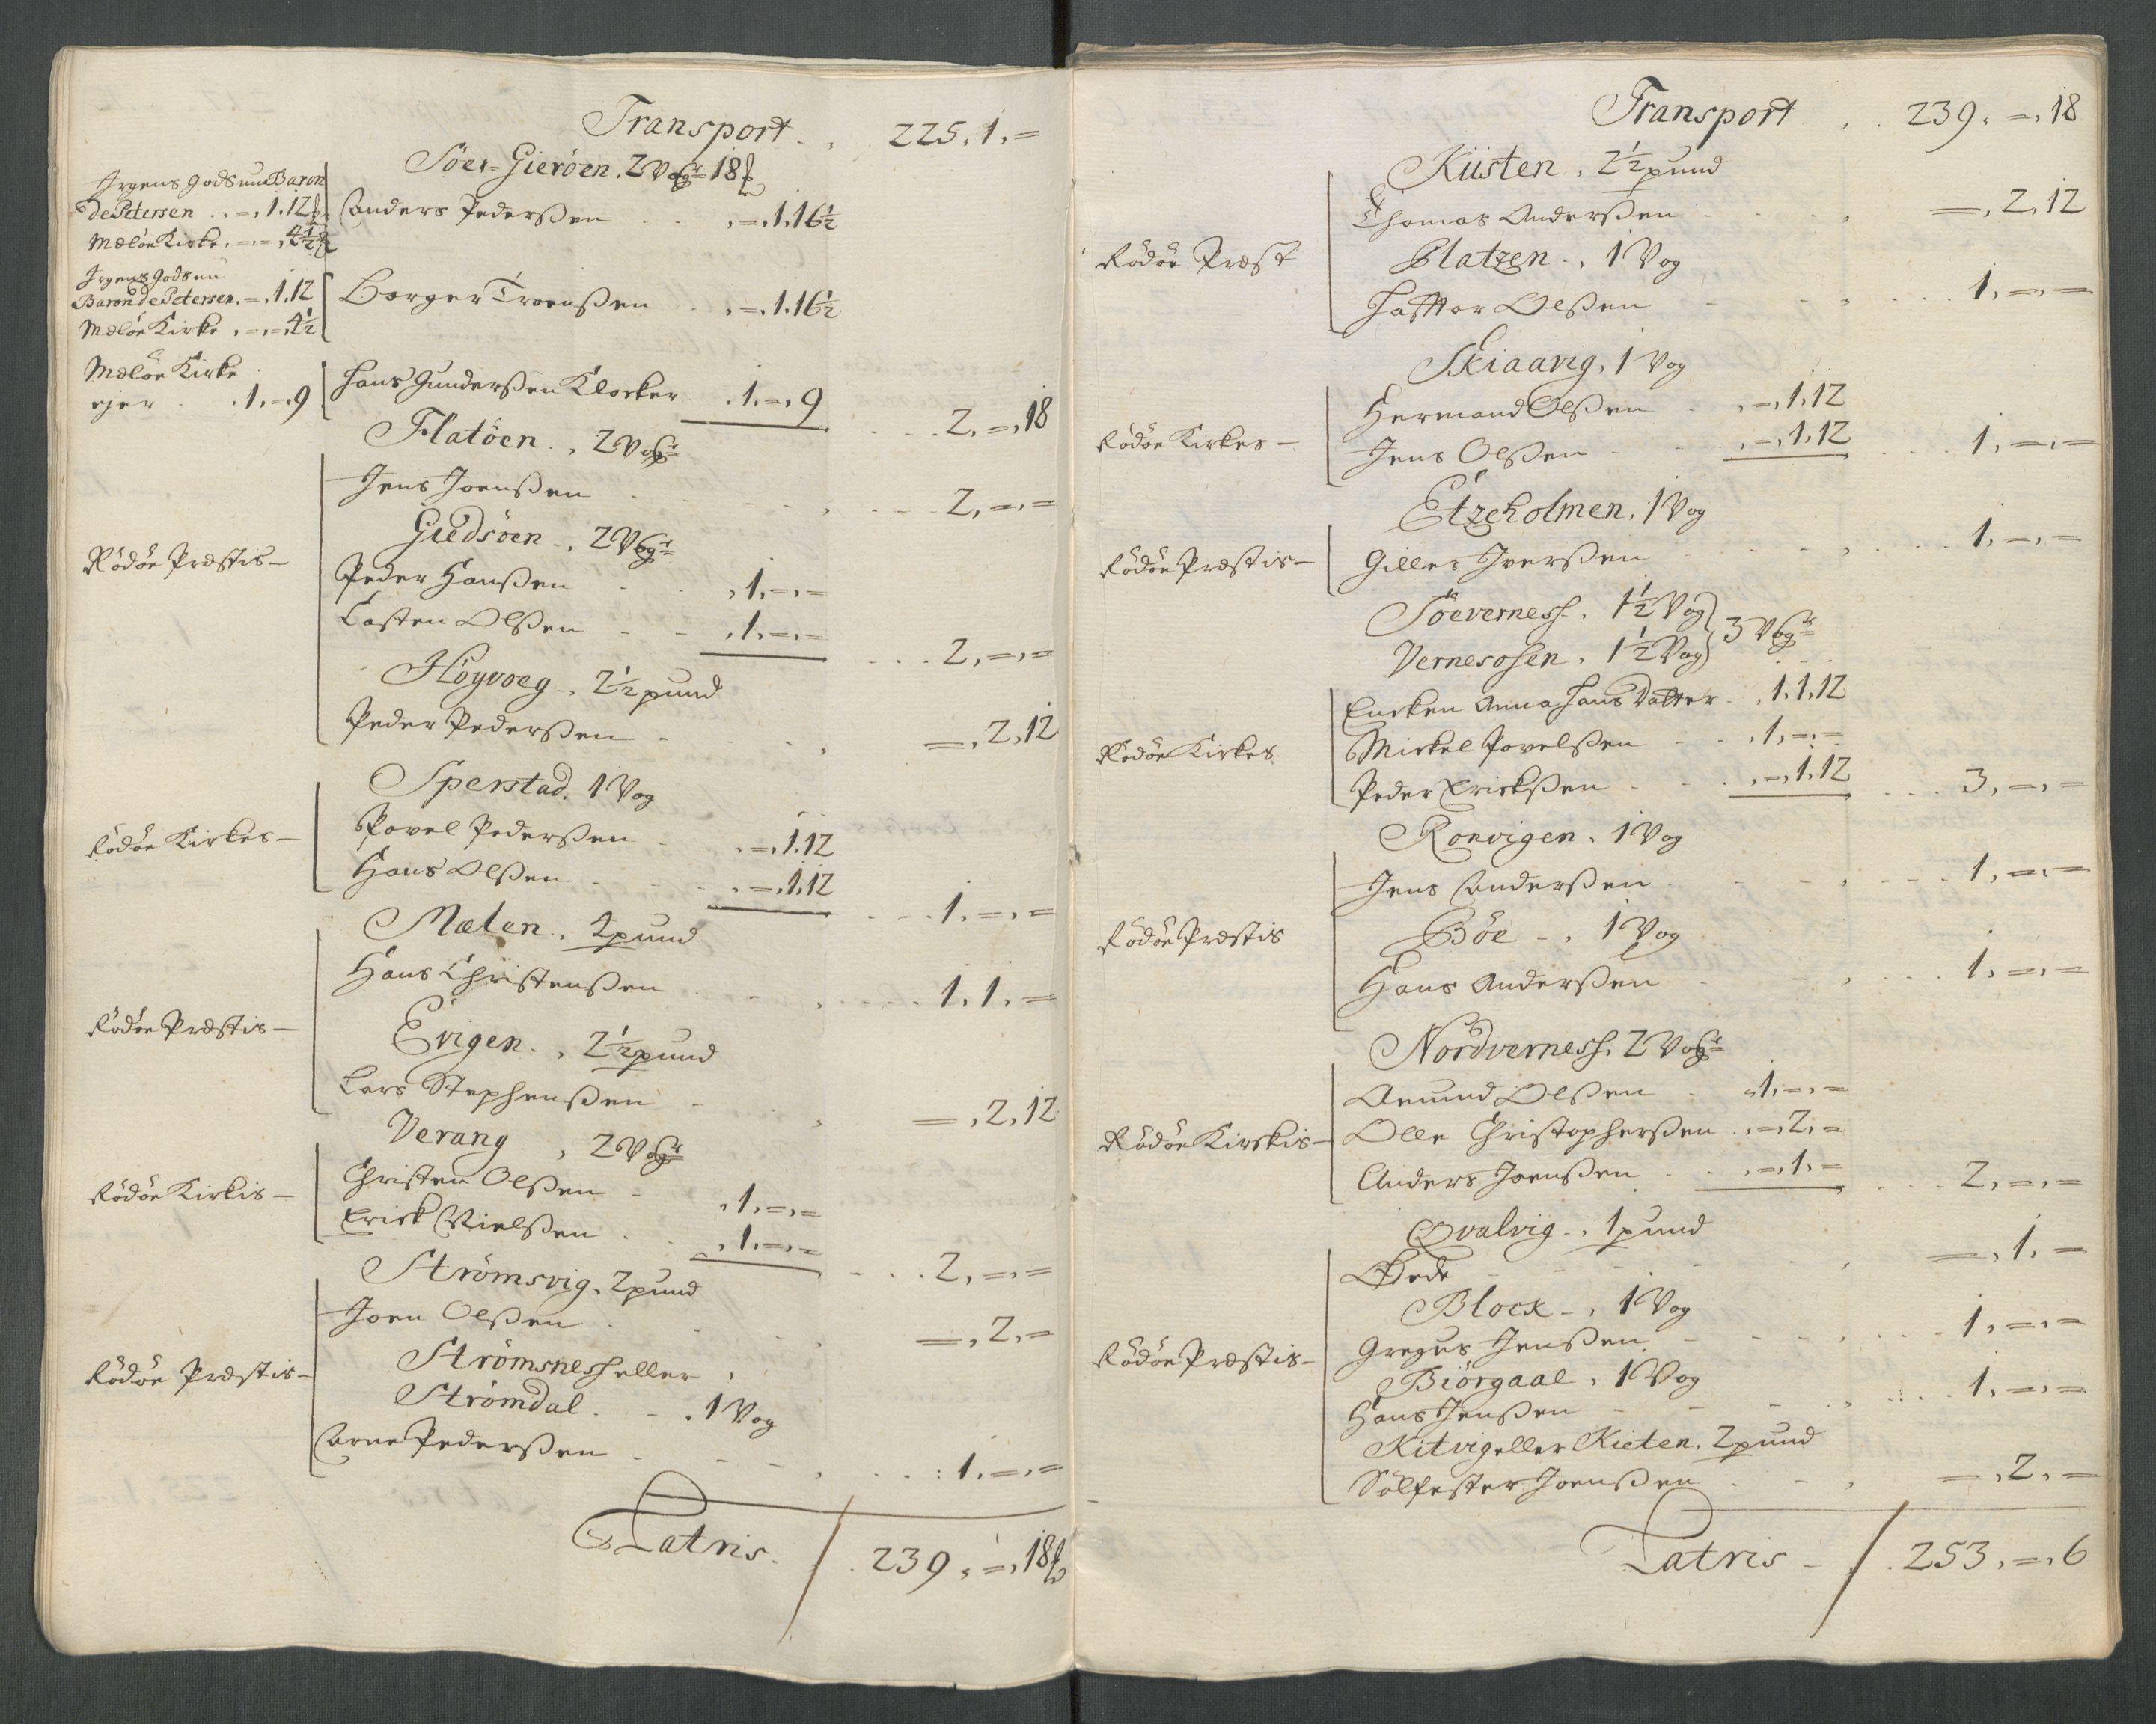 Transport . . 225. 1. =
Söer-Gieröen. 2 Vogr 18 ℔
Irgens gods nu Baron
de Petersen . . = . 1. 12 ℔
Meløe Kirke . = . = . 4½ ℔
Anders Pederßen . . . = . 1. 16½
Irgens gods nu
Baron de Petersen . = . 1. 12
Meløe Kirke . = . = . 4½
Borger Troenßen . . = . 1. 16½
Meløe Kirke
eger . . 1. = . 9
Hans Gunderßen Klocker . 1. = . 9 . . . 2. = . 18
Flatöen . , 2 Vogr
Jens Joenßen . . . 2. = . =
Giedsöen . , 2 Vogr
Rödöe Præstis –
Peder Hanßen . . . 1. = . =
Casten Olßen – – . 1. = . = . . . 2. = . =
Höyvoeg . , 2½ pund
Peder Pederßen . . . = . 2. 12
Sperstad. 1 Vog
Rödöe Kirkes –
Povel Pederßen . = . 1. 12
Hans Olßen . . . = . 1. 12 . . . 1. = . =
Melen . , 4 pund
Hans Christenßen . . . 1. 1. =
Rödöe Præstis –
Evigen . , 2½ pund
Lars Stephenßen – . = . 2. 12
Verang . , 2 Vogr
Rödöe Kirkis –
Christen Olßen – . 1. = . =
Erick Nielßen . . . 1. = . = – . . . 2. = . =
Strömsvig. 2 pund
Joen Olßen . . . = . 2. =
Rödöe Præstis –
Strömsness eller
Strömdal . – . 1 Vog
Arne Pederßen . – – . . . : 1. = . =
Latris . / . 239. = . 18 ℔
Transport . . 239. = . 18
Küsten . 2½ pund
Thomas Anderßen . . . = . 2. 12
Rödöe Præst
Platzen . , 1 Vog
Haftor Olßen . . . 1. = . =
Skiaavig. 1 Vog
Rödöe Kirkes –
Hermand Olßen . . = . 1. 12
Jens Olßen . . . = . 1. 12 . . . 1. = . =
Etzeholmen. 1 Vog
Rödöe Præstis –
Gilles Iverßen . . . 1. = . =
Söeverness . 1½ Vog } 3 Vogr
Vernesosen . 1½ Vog
Encken Anna Hans Datter . . 1. 1. 12
Rödöe Kirkes
Mickel Povelßen – – . 1. = . =
Peder Erickßen . . . = . 1. 12 . . . 3. = . =
Ronvigen . 1 Vog
Jens Anderßen . . . 1. = . =
Rödöe Præstis
Böe – . 1 Vog
Hans Anderßen . . . 1. = . =
Nordverness. 2 Vogr
Amund Olßen . . 1. = . =
Rödöe Kirckis –
Olle Christopherßen . . = . 2. =
Anders Joenßen . . . = . 1. = . . . 2. = . =
Qvalvig . , 1 pund
Øde – – . = . 1. =
Block – . 1 Vog
Rödöe Præstis –
Gregus Jenßen . . . 1. = . =
Biörgaal . 1 Vog
Hans Jenßen – – . . . 1. = . =
Kitvig eller Kieten. 2 pund
Sölfester Joenßen . . . = . 2. =
Latris – / . 253. = . 6